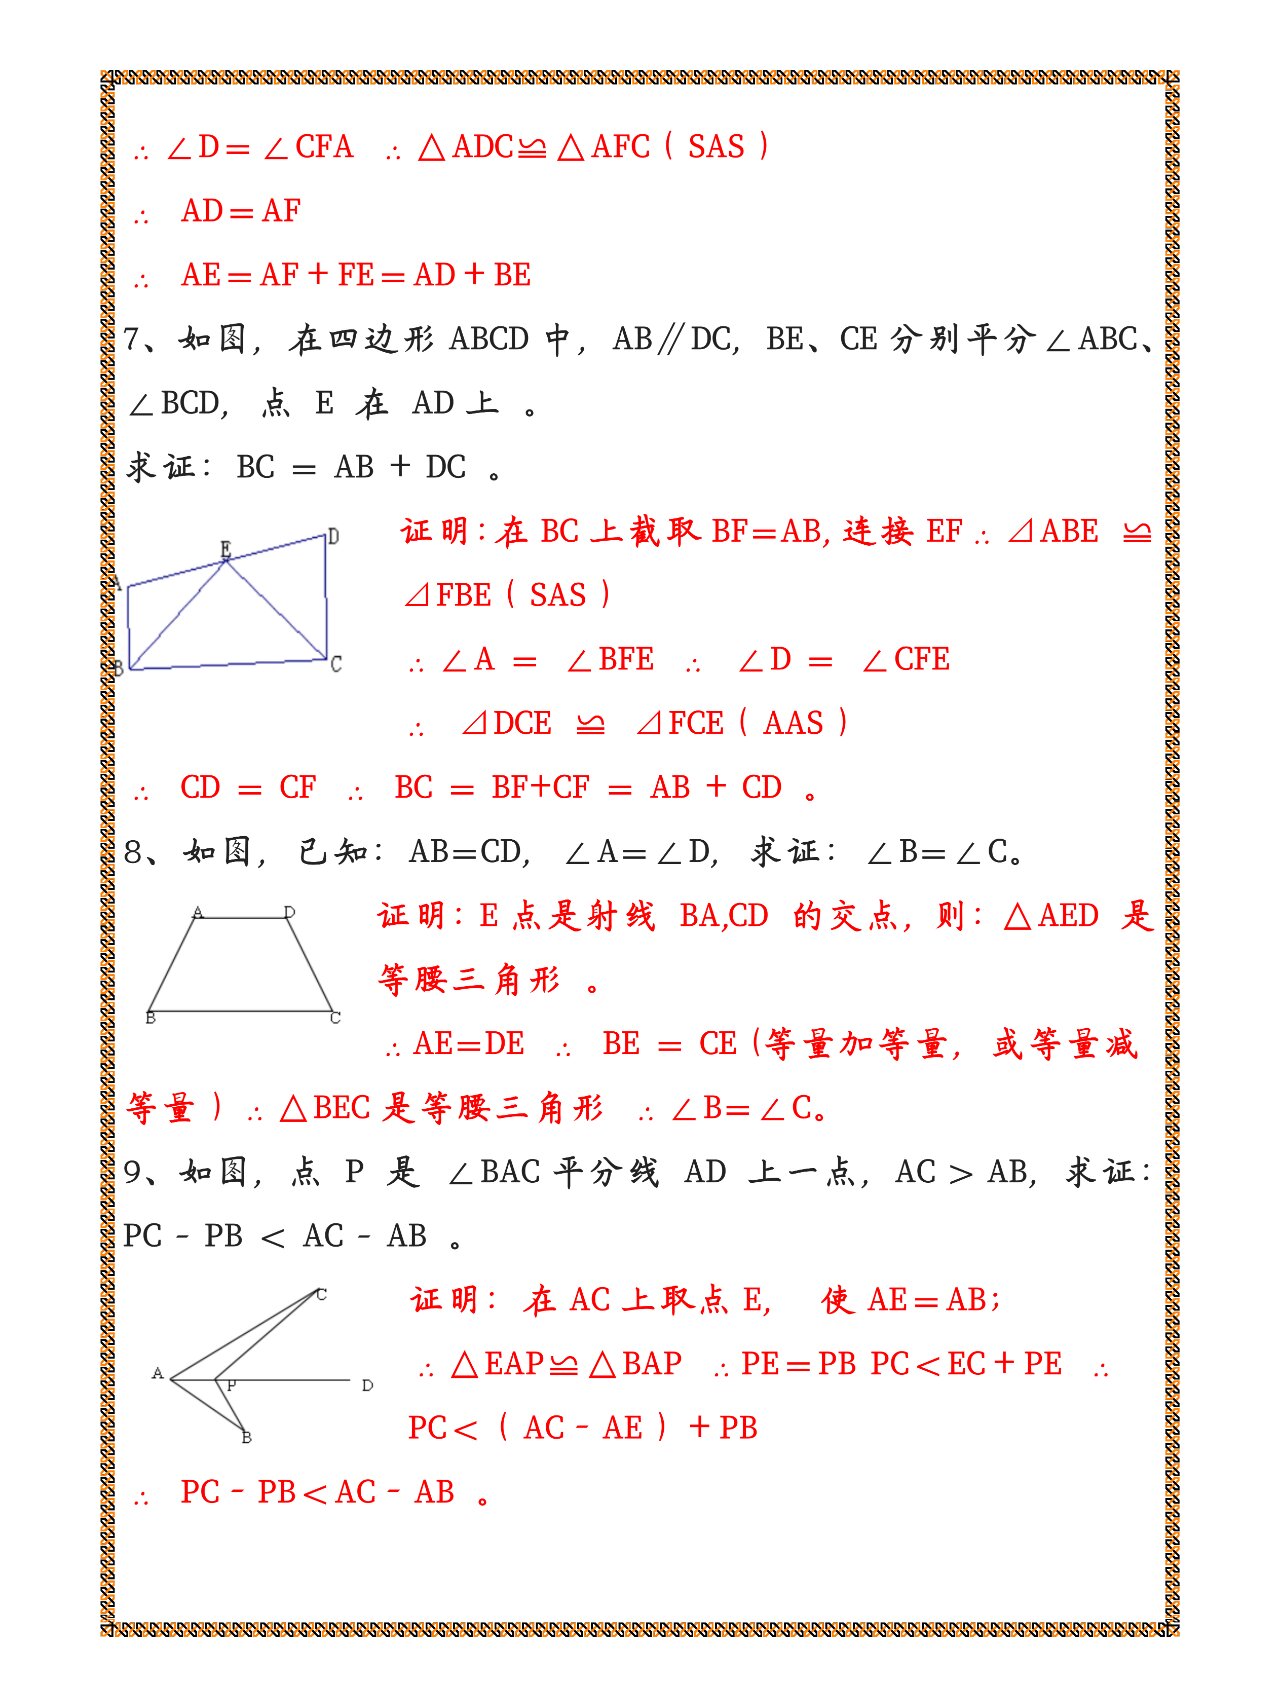 ∴ ∠D＝∠CFA ∴ △ADC≌△AFC（SAS）
∴ AD＝AF
∴ AE＝AF＋FE＝AD＋BE
7、如图，在四边形 ABCD 中，AB∥DC，BE、CE 分别平分∠ABC、
∠BCD，点 E 在 AD 上 。
求证：BC = AB + DC 。
证明：在 BC 上截取 BF=AB，连接 EF∴ ⊿ABE ≌
⊿FBE（SAS）
∴ ∠A = ∠BFE ∴ ∠D = ∠CFE
∴ ⊿DCE ≌ ⊿FCE（AAS）
∴ CD = CF ∴ BC = BF+CF = AB + CD 。
A
B
C
D
E
8、如图，已知：AB=CD，∠A=∠D，求证：∠B=∠C。
证明：E 点是射线 BA,CD 的交点，则：△AED 是
等腰三角形 。
∴AE=DE ∴ BE = CE (等量加等量，或等量减
等量）∴△BEC 是等腰三角形 ∴∠B=∠C。
A
D
B
C
9、如图，点 P 是 ∠BAC 平分线 AD 上一点，AC > AB，求证：
PC - PB < AC - AB 。
证明：在 AC 上取点 E， 使 AE＝AB；
∴ △EAP≌△BAP ∴PE＝PB PC＜EC＋PE ∴
PC＜（AC－AE）＋PB
∴ PC－PB＜AC－AB 。
C
A
P
D
B